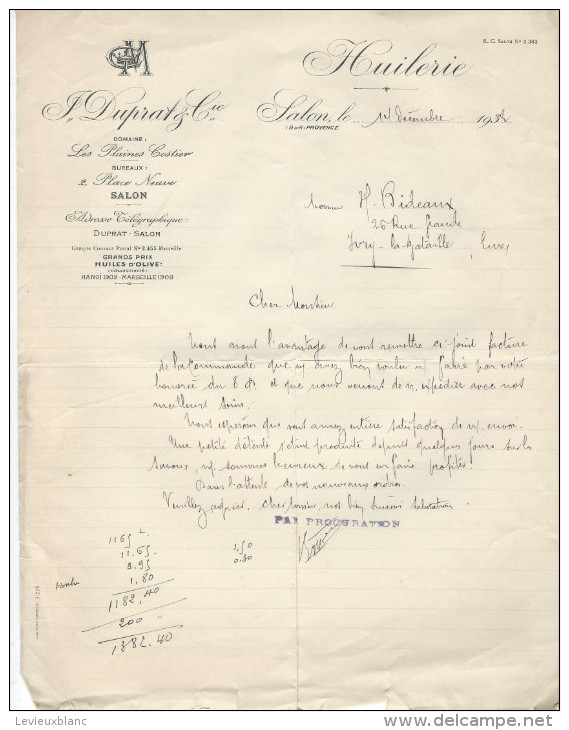 R. C. SALON Nº 2.383
Huilerie
J. Duprat & Cie
DOMAINE:
Les Plaines Costier
BUREAUX:
2, Place Neuve
SALON
Adresse Télégraphique:
DUPRAT-SALON
Compte Courant Postal Nº 2.455 Marseille
GRANDS PRIX
HUILES D'OLIVE
(COLLECTIVITÉ)
HANOÏ 1902-MARSEILLE 1908
Salon, le 14 décembre 1932
(B-du-R) PROVENCE
Monsieur H. Bideaux
26 Rue Grande
Ivry-la-Bataille Eure
Cher Monsieur
Nous avons l'avantage de vous remettre ci-joint facture
de la commande que avez bien voulu faire par votre
honorée du 8 et que nous venons de expédier avec nos
meilleurs soins.
Nous espérons que vous aurez entière satisfaction de envoi.
Une petite détente s'étant produite depuis quelques jours sur les
savons, sommes heureux de vous en faire profiter.
Dans l'attente de vos nouveaux ordres.
Veuillez agréer, cher Monsieur, nos bien sincères salutations.
PAR PROCURATION
1165
11.65 1.50
3.95 0.30
1.80
1182.40
200 "
1382.40
Levieuxblanc
delcampe.net